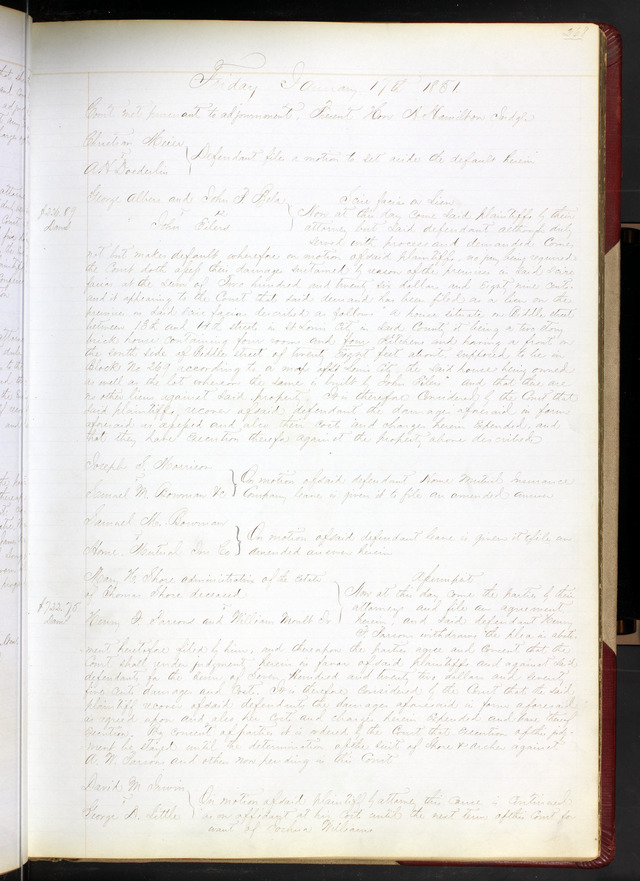 258
Friday January 17th 1851
Court met pursuant to adjournment. Present Hon A Hamilton Judge
Christian Meier
vs
A W Doederlin
Defendant files a motion to set aside the default herein
George Albers and John F
vs
John Eilers
$226.89
Dam
Scire facias on Lien
Now at this day come said plaintiffs by their
attorney but said defendant although duly
served with process and demanded come
not but makes default wherefore on motion of said plaintiffs
the Court doth assess their damages sustained by reason of the premises in said Scire
facias at the sum of Two hundred and twenty six dollars and Eighty nine cents
and it appearing to the Court that said demand has been filed as a lien on the
premises in said Scire facias described as follows "a house situate on Biddle street
between 13th and 14th streets in St Louis City in said County it being a two story
brick house containing four rooms and four kitchens and having a front on
the south side of Biddle street of twenty Eight feet about supposed to be in
Block No according to a map of St Louis City the said house being owned
as well as the lot whereon the same is built by John Eilers" and that there are
no other liens against said property. It is therefore Considered by the Court that
said plaintiffs recover of said defendant the damages aforesaid in form
aforesaid assessed and also their costs and charges herein expended, and
that they have Execution therefor against the property above described
Joseph S. Morrison
vs
Samuel M. Bowman &c
On motion of said defendant Home Mutual Insurance
Company leave is given it to file an amended answer
Samuel M. Bowman
vs
Home Mutual Ins Co
On motion of said defendant leave is given it to file an
amended answer herein
Mary M. Shore administratrix of the estate
of Thomas Shore deceased
vs
Henry F Parsons and William
$722.75
Dam
Assumpsit
Now at this day come the parties by their
attorneys and file an agreement
herein, and said defendant Henry
F Parsons withdraws the plea in abate-
ment heretofore filed by him, and thereupon the parties agree and consent that the
Court shall render judgment herein in favor of said plaintiff and against said
defendants for the sum of Seven Hundred and twenty two dollars and seventy
five cents damages and Costs. It is therefore Considered by the Court that the said
plaintiff recover of said defendants the damages aforesaid in form aforesaid
agreed upon and also her costs and charges herein expended and have thereof
execution. By consent of parties it is ordered by the Court that execution of this judg-
ment be stayed until the determination of the suit of Shore against
A. W. Parsons and others now pending in this Court
David M. Irwin
vs
George D. Little
On motion of said plaintiff by attorney this cause is Continued
on an affidavit at his Costs until the next term of this Court for
want of Joshua Williams